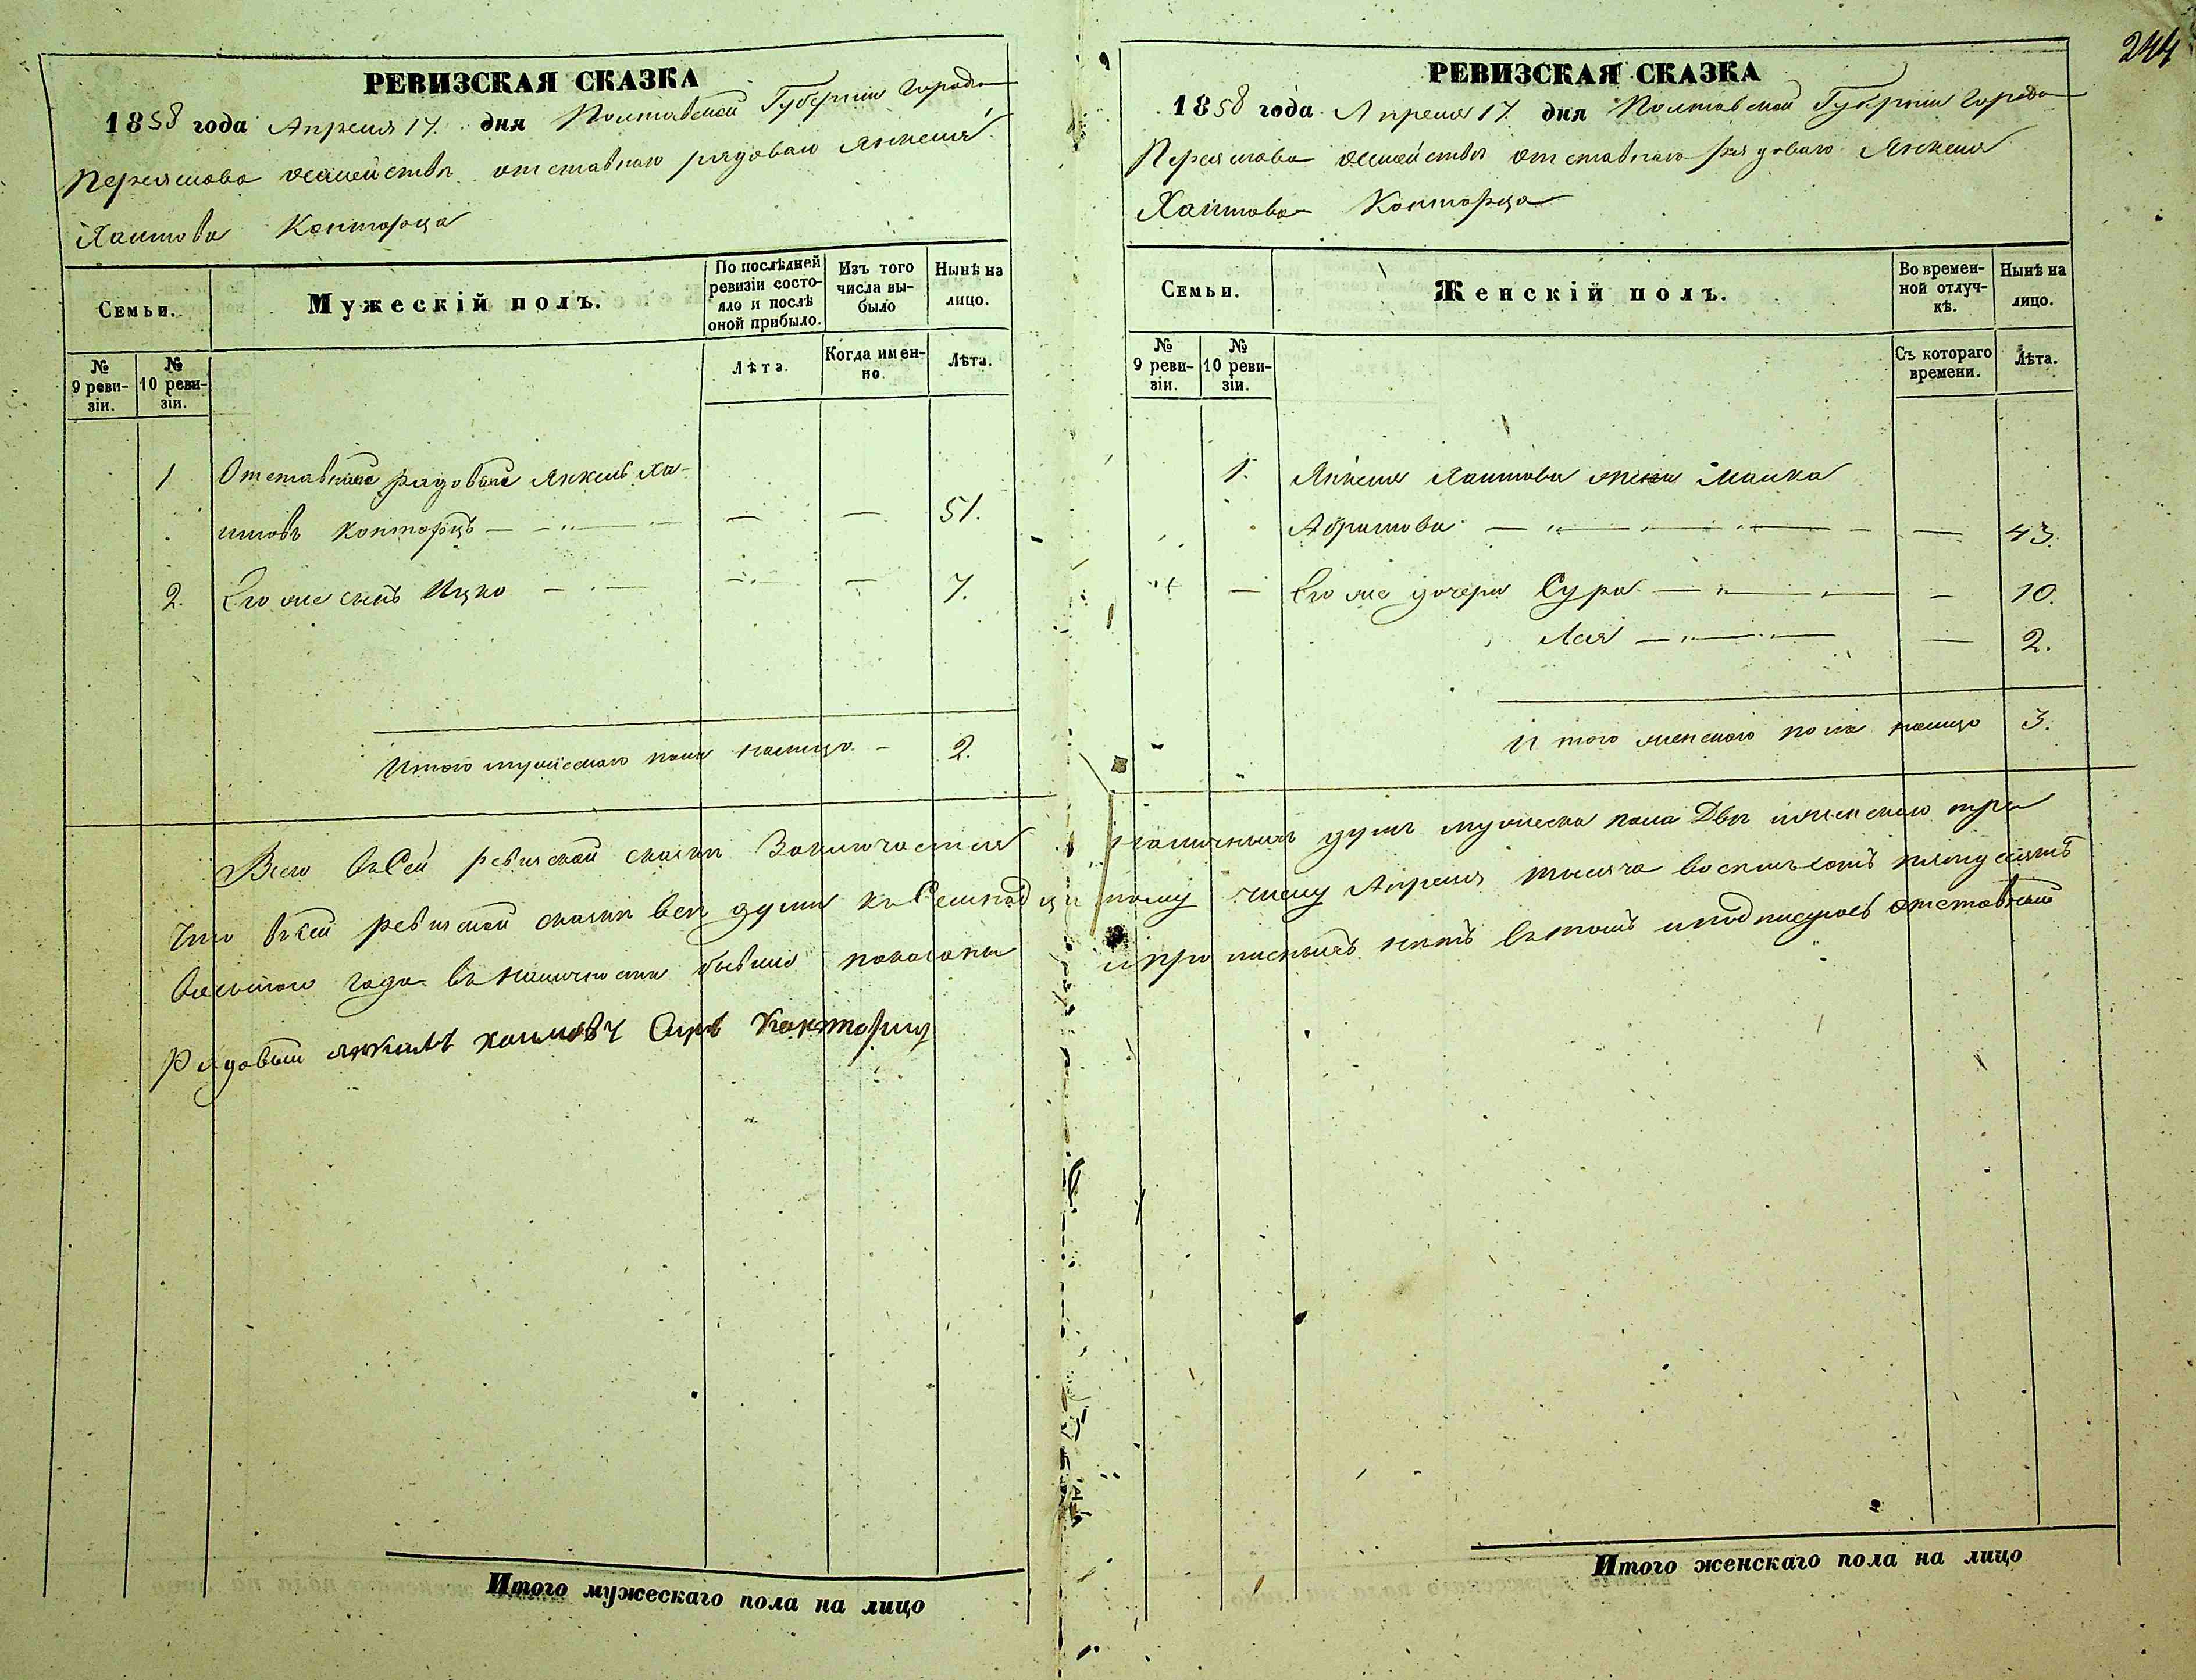 244
РЕВИЗСКАЯ СКАЗКА
1858 года Апреля 17. дня Полтавской Губернии Города
Переяслова о семействѣ отставнаго рядоваго Янкеля
Хаимова Канторца
Семьи.
Мужескій полъ.
По послѣдней ревизіи состо-
яло и послѣ оной прибыло.
Изъ того числа вы-
было
Нынѣ на лицо.
№ 9 реви-
зіи.
№ 10 реви-
зіи.
Лѣта.
Когда имен-
но.
Лѣта.
1 Отставной рядовой Янкель Ха-
имовъ Канторцъ — — — 51.
2. Его же сынъ Ицко — — — 7.
Итого мужескаго пола налицо — 2.
РЕВИЗСКАЯ СКАЗКА
1858 года Апреля 17 дня Полтавской Губернии Города
Переяслова о семействѣ отставнаго рядоваго Янкеля
Хаимова Канторца
Семьи.
Женскій полъ.
Во времен-
ной отлуч-
кѣ.
Нынѣ на лицо.
№ 9 реви-
зіи.
№ 10 реви-
зіи.
Съ котораго времени.
Лѣта.
1. Янкеля Хаимова жена Малка
Абрамова — — — 43.
— Его же дочери Сура — — 10.
Лея — — 2.
Итого женскаго пола налицо 3.
Всего въ Сей ревизской сказки Заключается наличныхъ душъ мужеска пола Двѣ и женскаго три
Что въ сей ревизской сказки всѣ души къ Семнадцатому числу Апреля тысяча восемьсотъ пятдесятъ
осьмого года въ наличности бывшие показаны и прописныхъ нетъ въ томъ и подписуюсь отставной
Рядовый
Итого мужескаго пола на лицо
Итого женскаго пола на лицо